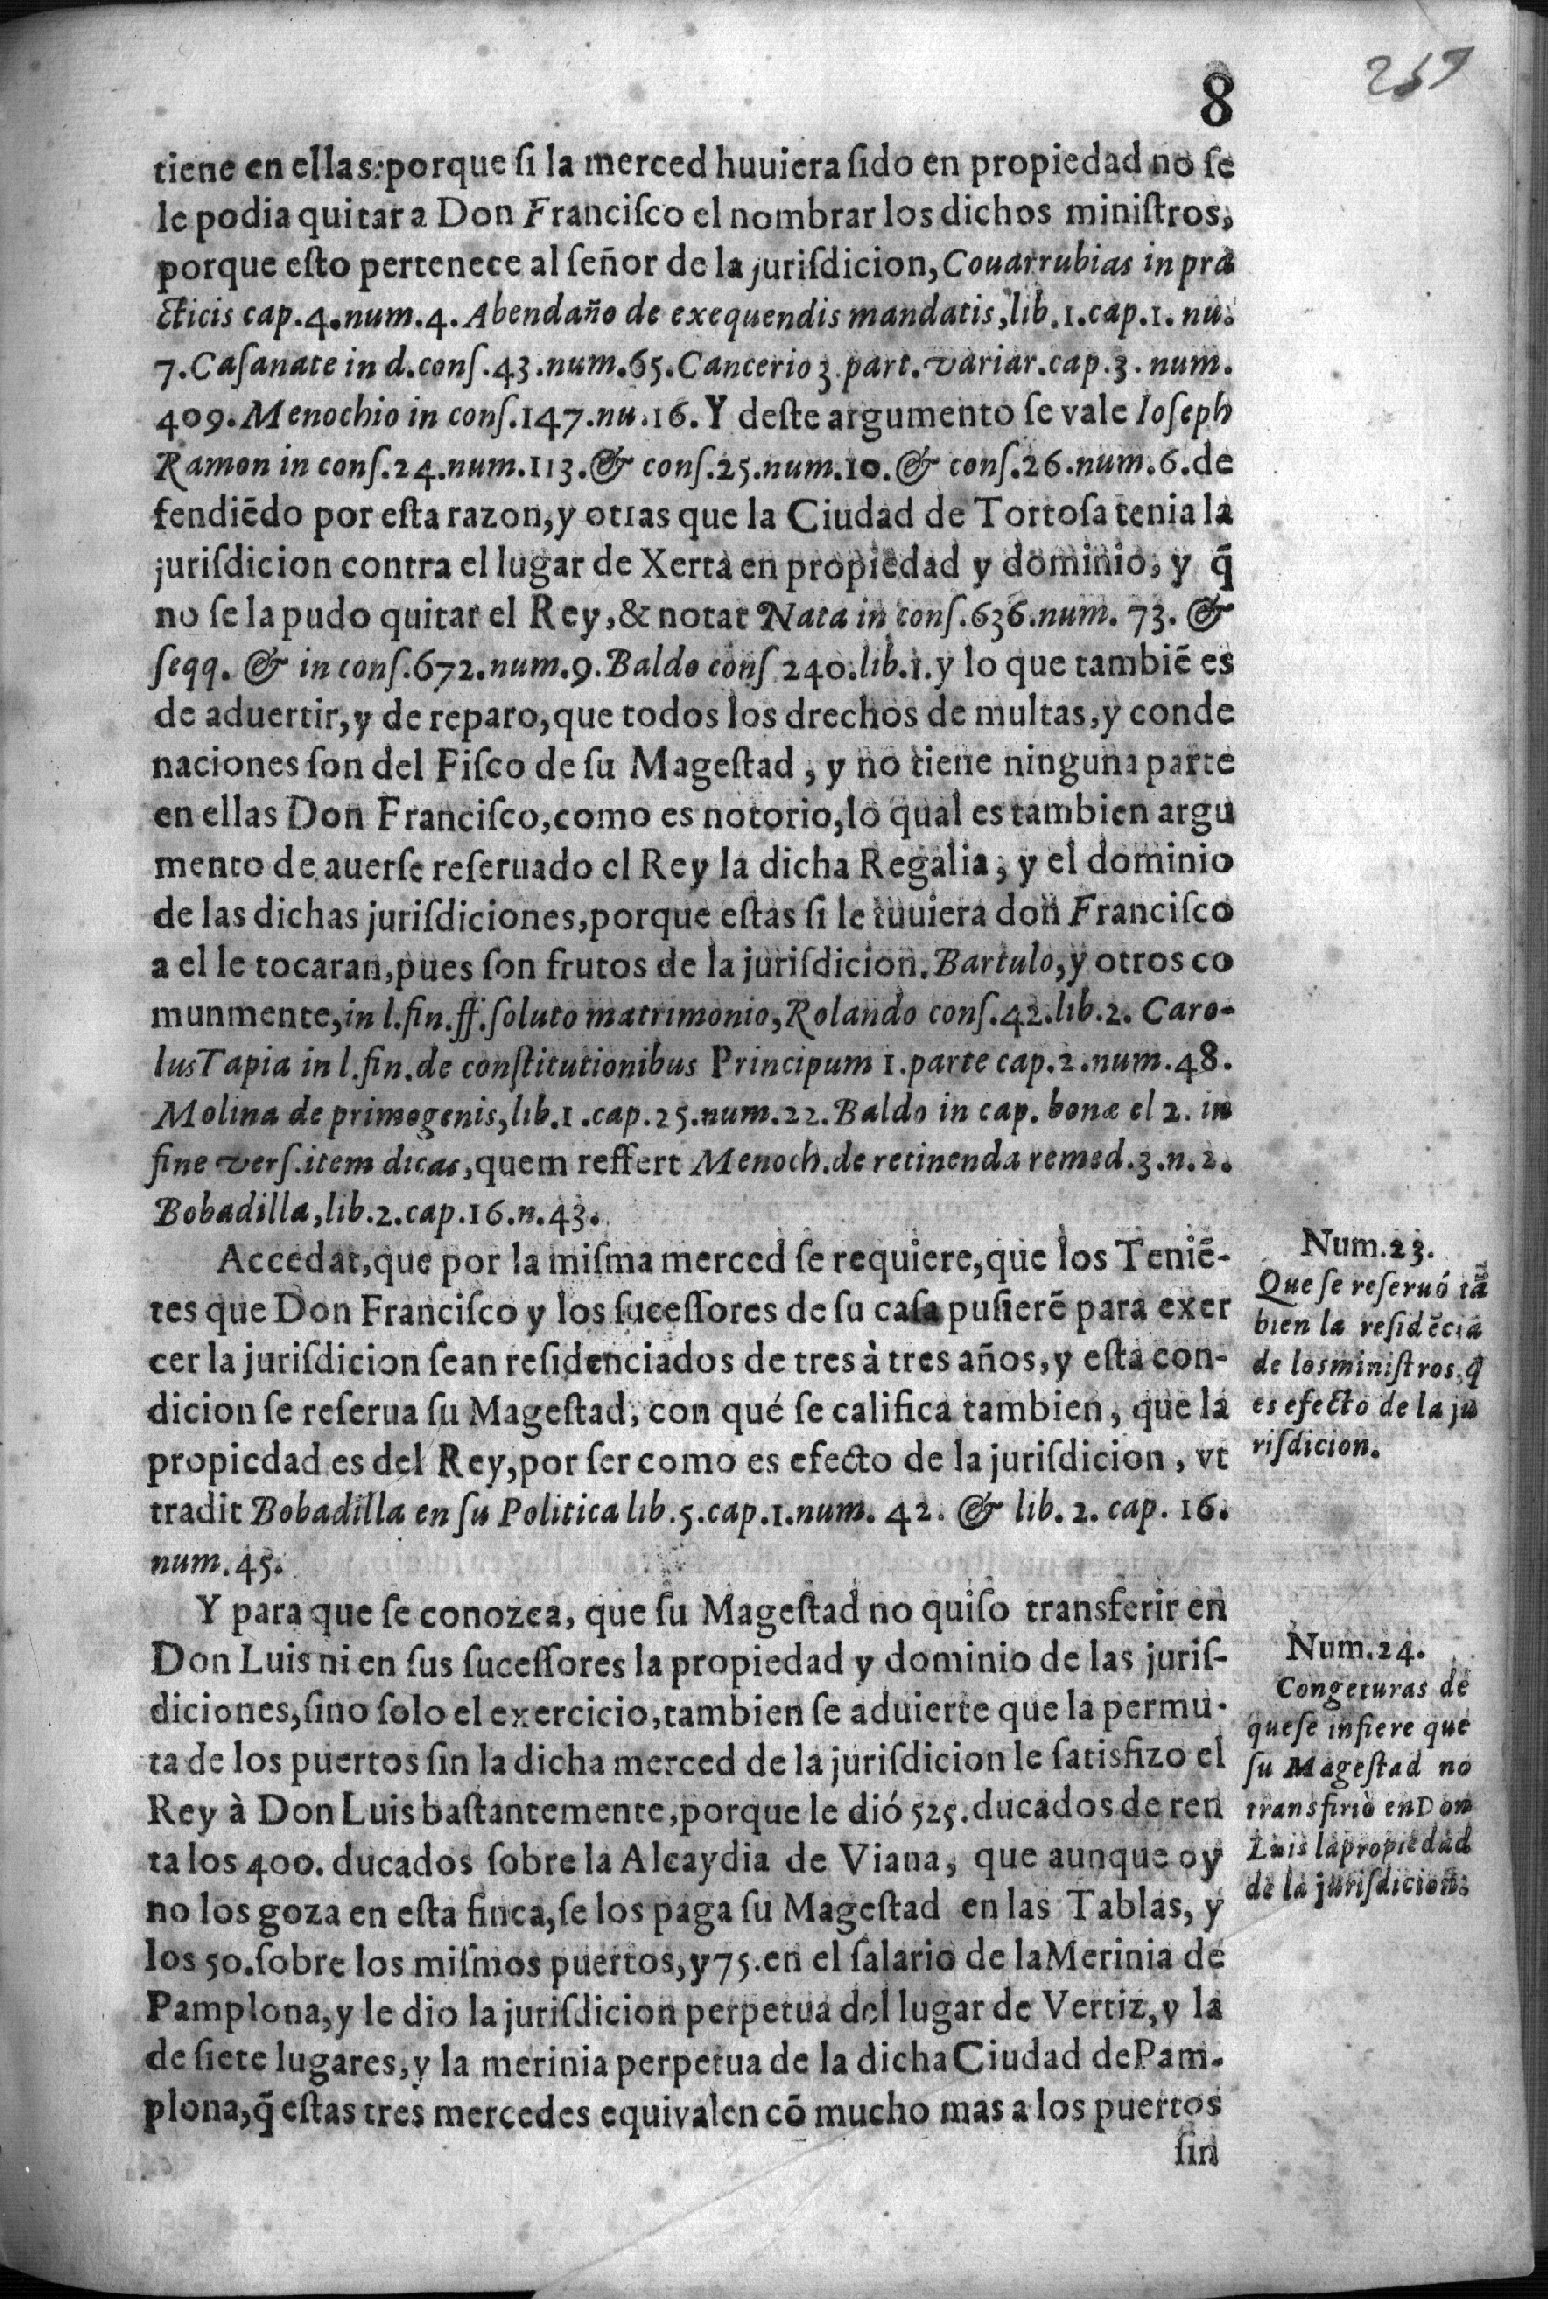 8
tiene en ellas: porque ſi la merced huuiera ſido en propiedad no ſe
le podia quitar a Don Franciſco el nombrar los dichos miniſtros,
porque eſto pertenece al ſeñor de la juriſdicion, Couarrubias in pra
cticis cap.4.num.4. Abendaño de exequendis mandatis, lib.1.cap.1. nu.
7. Caſanate in d.conſ.43.num.65. Cancerio 3.part.variar.cap.3. num.
409. Menochio in conſ.147.nu.16. Y deſte argumento ſe vale Ioſeph
Ramon in conſ.24.num.113.& conſ.25.num.10.& conſ.26.num.6.de
fendiẽdo por eſta razon, y otras que la Ciudad de Tortoſa tenia la
juriſdicion contra el lugar de Xerta en propiedad y dominio, y q̃
no ſe la pudo quitar el Rey, & notat Nata in conſ.636.num. 73. &
ſeqq. & in conſ.672.num.9. Baldo conſ 240.lib.1. y lo que tambiẽ es
de aduertir, y de reparo, que todos los drechos de multas, y conde
naciones ſon del Fiſco de ſu Mageſtad, y no tiene ninguna parte
en ellas Don Franciſco, como es notorio, lo qual es tambien argu
mento de auerſe reſeruado el Rey la dicha Regalia, y el dominio
de las dichas juriſdiciones, porque eſtas ſi le tuuiera don Franciſco
a el le tocaran, pues ſon frutos de la juriſdicion. Bartulo, y otros co
munmente, in l.fin.ff.ſoluto matrimonio, Rolando conſ.42.lib.2. Caro-
lus Tapia in l.fin.de conſtitutionibus Principum 1.parte cap.2.num.48.
Molina de primogenis, lib.1.cap.25.num.22. Baldo in cap. bonæ el 2. in
fine verſ.item dicas, quem reffert Menoch.de retinenda remed.3.n.2.
Bobadilla, lib.2.cap.16.n.43.
Accedat, que por la miſma merced ſe requiere, que los Teniẽ-
tes que Don Franciſco y los ſuceſſores de ſu caſa puſierẽ para exer
cer la juriſdicion ſean reſidenciados de tres à tres años, y eſta con-
dicion ſe reſerua ſu Mageſtad, con qué ſe califica tambien, que la
propiedad es del Rey, por ſer como es efecto de la juriſdicion, vt
tradit Bobadilla en ſu Politica lib.5.cap.1.num. 42. & lib. 2. cap. 16.
num.45.
Num.23.
Que ſe reſeruó tã
bien la reſidẽcia
de los miniſtros, q̃
es efecto de la ju
riſdicion.
Y para que ſe conozca, que ſu Mageſtad no quiſo transferir en
Don Luis ni en ſus ſuceſſores la propiedad y dominio de las juriſ-
diciones, ſino ſolo el exercicio, tambien ſe aduierte que la permu-
ta de los puertos ſin la dicha merced de la juriſdicion le ſatisfizo el
Rey à Don Luis baſtantemente, porque le dió 525. ducados de ren
ta los 400. ducados ſobre la Alcaydia de Viana, que aunque oy
no los goza en eſta finca, ſe los paga ſu Mageſtad en las Tablas, y
los 50. ſobre los miſmos puertos, y 75. en el ſalario de la Merinia de
Pamplona, y le dio la juriſdicion perpetua del lugar de Vertiz, y la
de ſiete lugares, y la merinia perpetua de la dicha Ciudad de Pam-
plona, q̃ eſtas tres mercedes equivalen cõ mucho mas a los puertos
ſin
Num.24.
Congeturas de
que ſe infiere que
ſu Mageſtad no
transfiriò en Don
Luis la propiedad
de la juriſdicion.